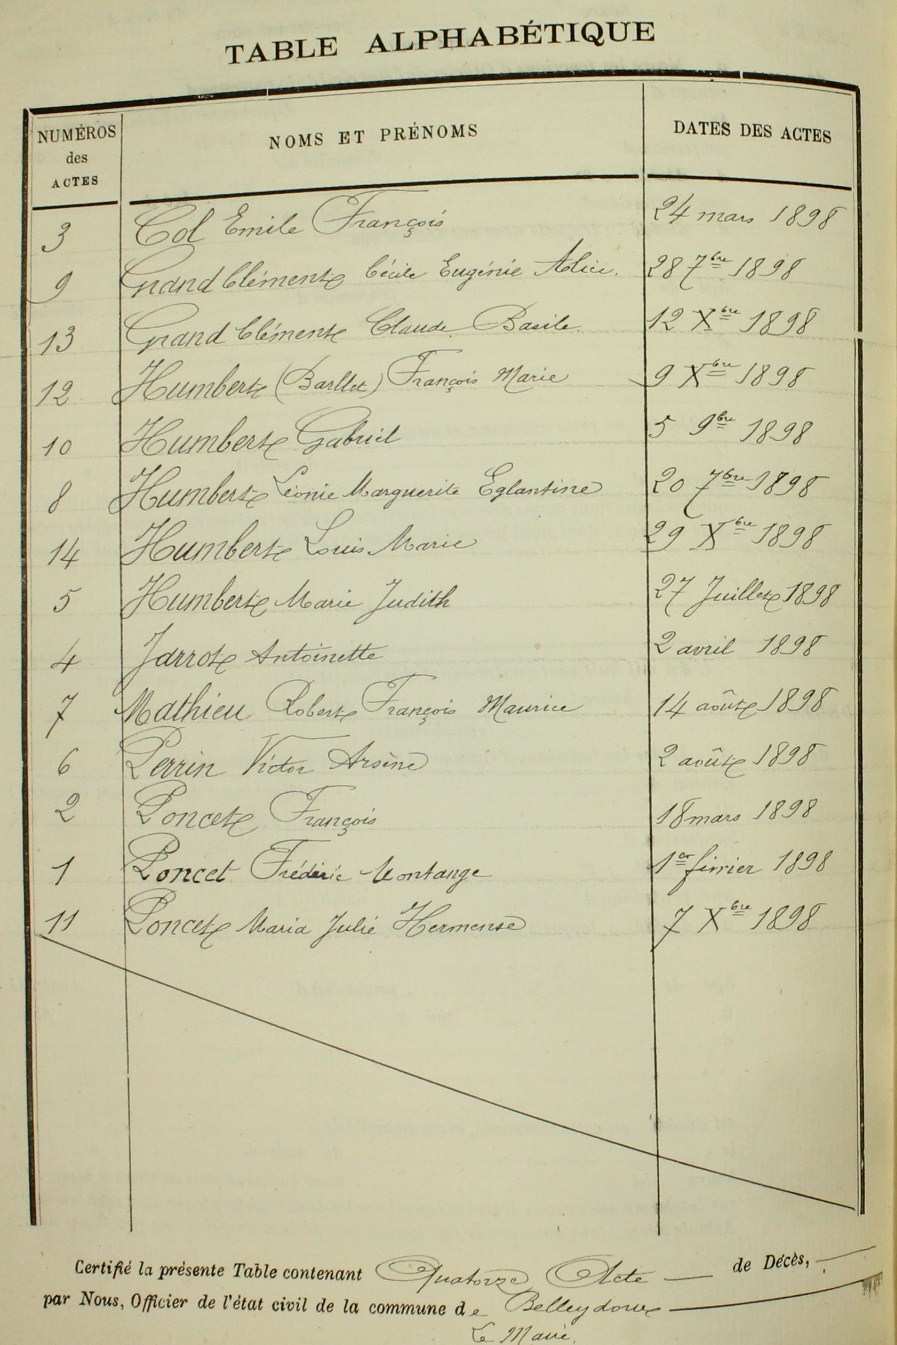 TABLE ALPHABÉTIQUE
NUMÉROS des ACTES NOMS ET PRÉNOMS DATES DES ACTES
3 Col Emile François 24 mars 1898
9 Grand Clément Cécile Eugénie Alice. 28 7bre 1898
13 Grand Clément Claude Basile 12 Xbre 1898
12 Humbert (Barllet) François Marie 9 Xbre 1898
10 Humbert Gabriel 5 9bre 1898
8 Humbert Léonie Marguerite Eglantine 20 7bre 1898
14 Humbert Louis Marie 29 Xbre 1898
5 Humbert Marie Judith 27 Juillet 1898
4 Jarrot Antoinette 2 avril 1898
7 Mathieu Robert François Maurice 14 août 1898
6 Perrin Victor Arsène 2 août 1898
2 Poncet François 18 mars 1898
1 Poncet Frédéric Montange 1er février 1898
11 Poncet Maria Julie Hermense 7 Xbre 1898
Certifié la présente Table contenant Quatorze Acte de Décès,
par Nous, Officier de l'état civil de la commune de Belleydoux
Le Maire.